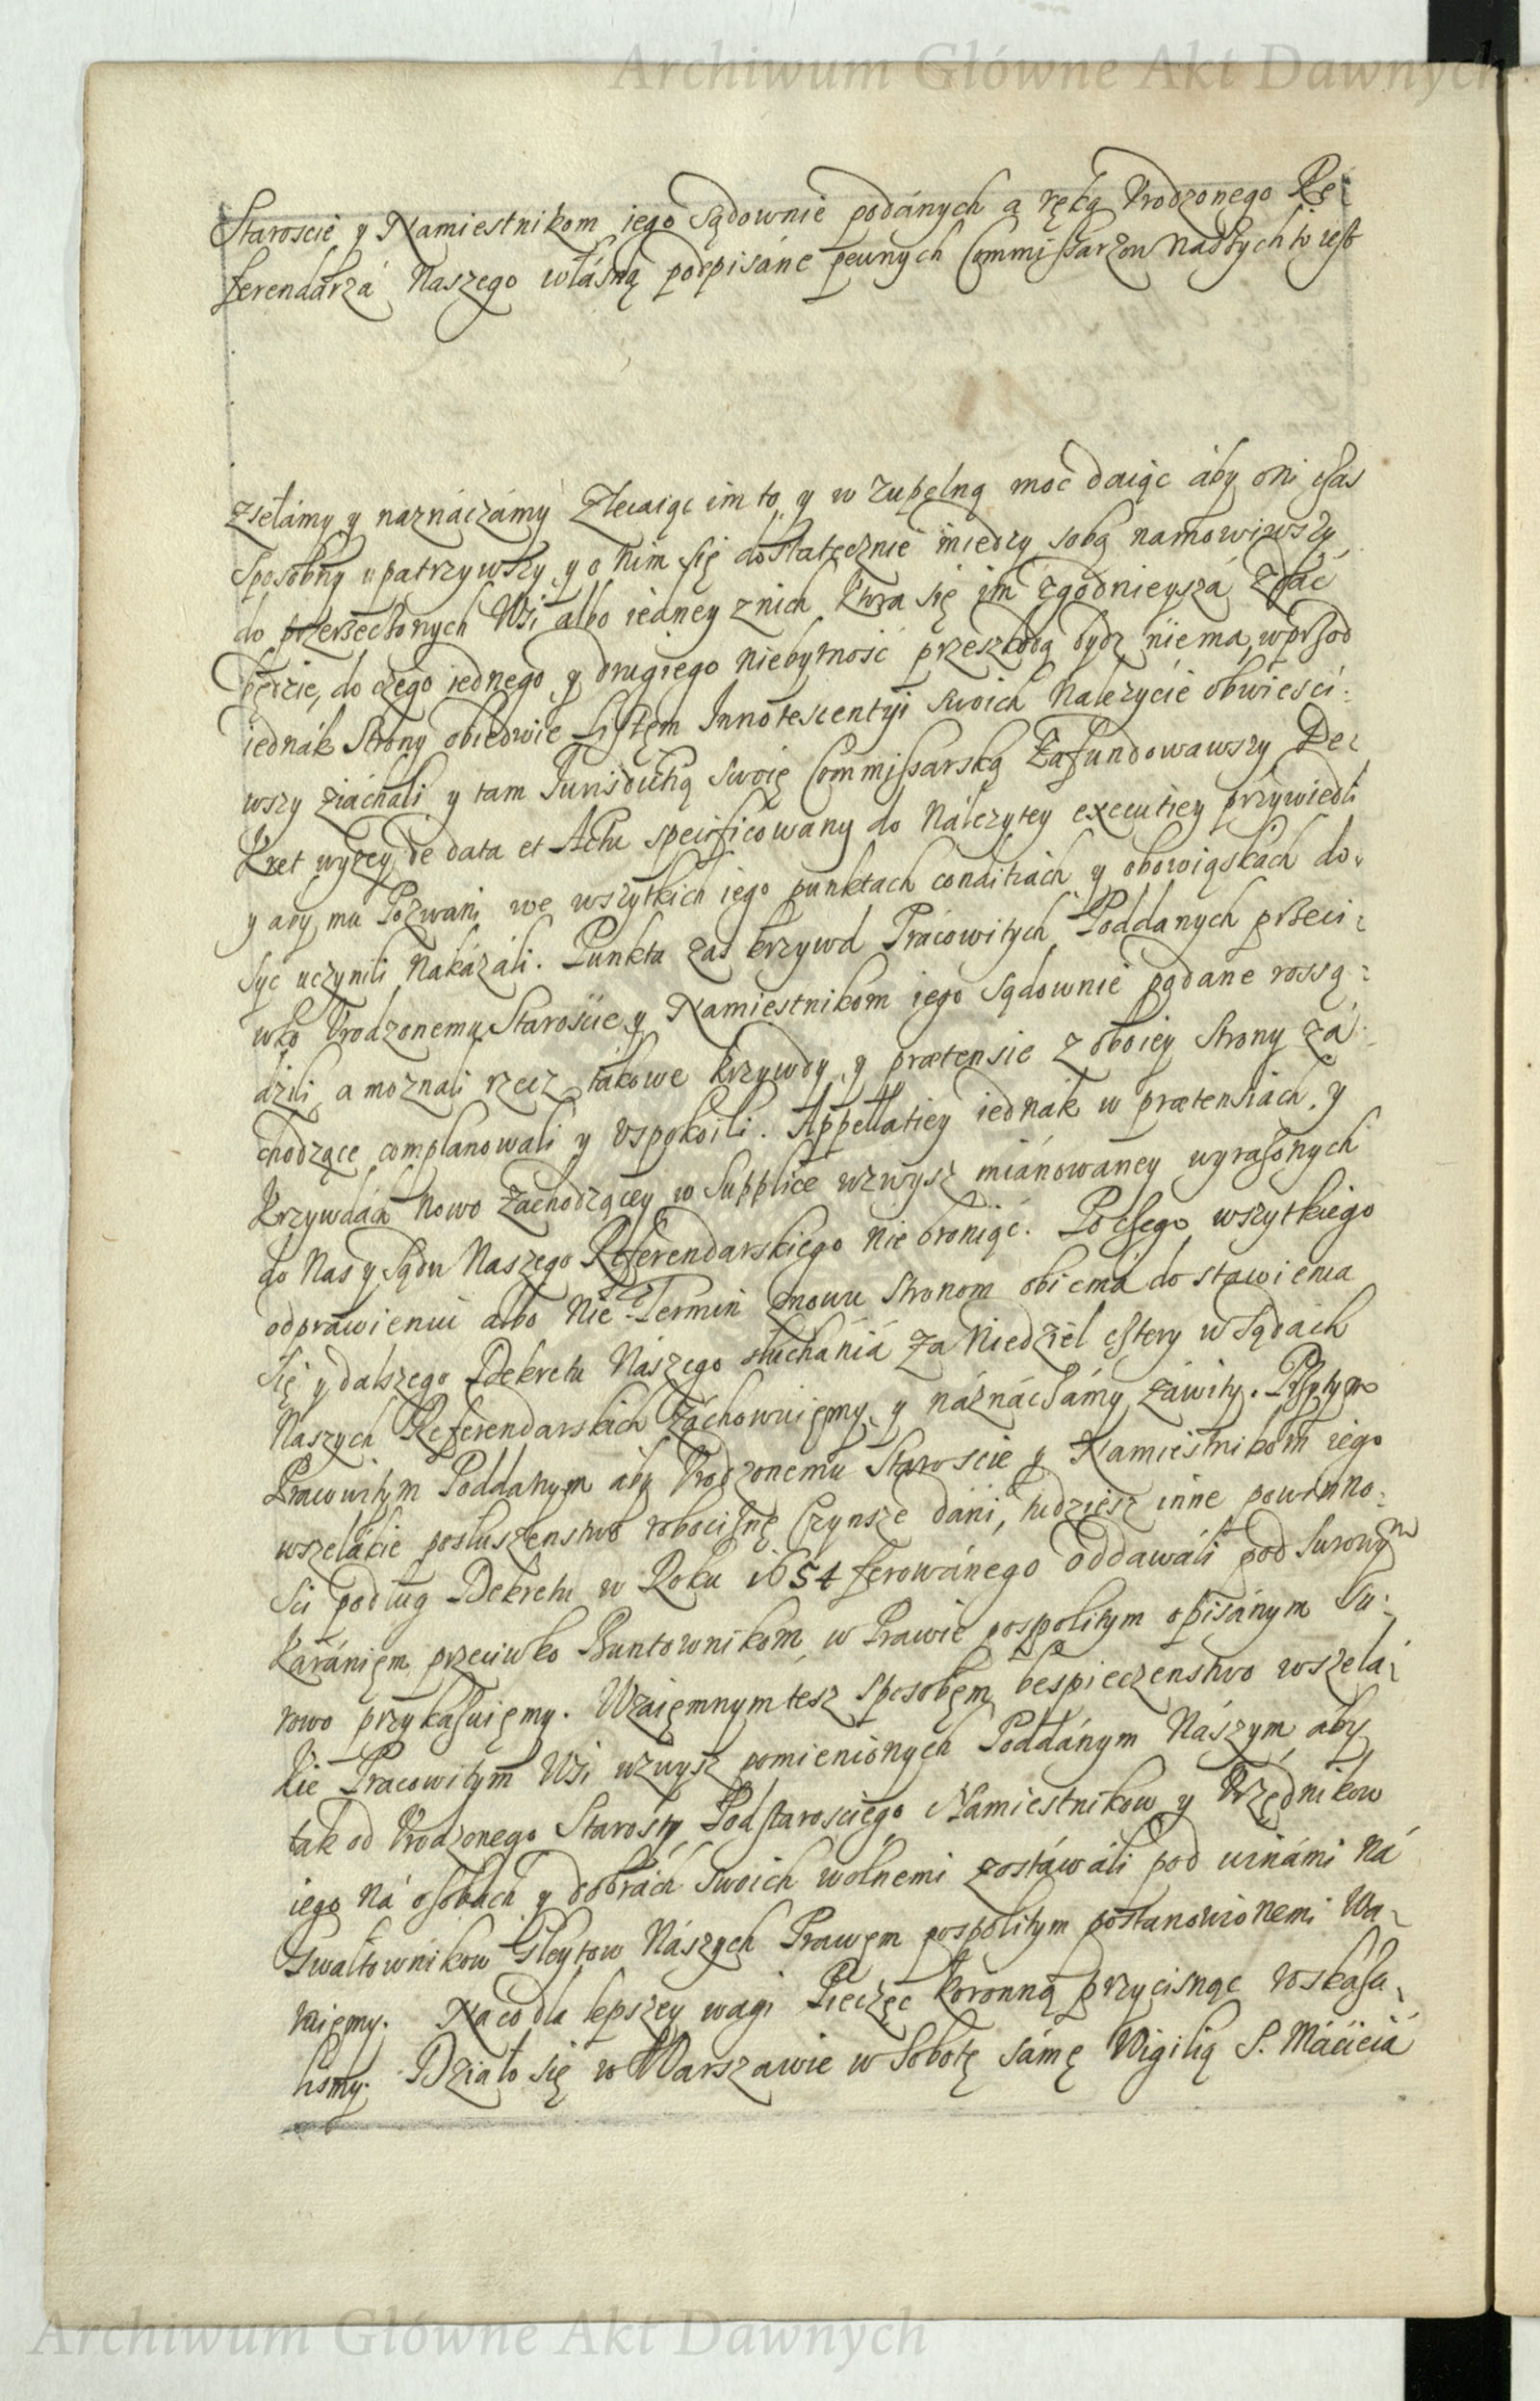 Archiwum Główne Akt Dawnych
Staroscie y Namiestnikom iego sądownie podánych a ręką Vrodzonego Re⸗
ferendarza Naszego własną podpisáne pewnych Commissarzow naszych to iest
zsełamy y naznáczámy Zlecaiąc im to, y w zupęlną moc daiąc áby oni czas
sposobny upatrzywszy y o nim się dostatęcznie między sobą namowiwszy,
do przerzeczonych Wsi albo iedney z nich ktora się im zgodnieysza zdać
będzie, do czego iednego y drugiego niebytność przeszkodą bydz niema, wprzod
iednák Strony obiedwie Listęm Innotescentyi swoich Nalezycie obwieści⸗
wszy ziachali y tam Jurisdictią swoię Commissarską Zafundowawszy De⸗
kret wyzey de data et Actu specificowany do Nálezytey executiey przywiedli
y aby mu Pozwani we wszytkich iego punktach conditiach y obowiąskach do⸗
syć uczynili Nakázáli. Punkta zas krzywd Prácowitych Poddanych przeci⸗
wko Vrodzonemu Staroscie y Namiestnikom iego sądownie pądane rossą⸗
dzili, a moznali rzecz tákowe krzywdy y prætensie z oboiey Strony zá⸗
chodzące complanowali y vspokoili. Appellatiey iednák w prætensiach, y
krzywdách nowo zachodzącey w Supplice wzwysz miánowaney wyrazonych
do Nas y Sądu Naszego Referendarskiego nie broniąc. Po czego wszytkiego
odprawieniu albo Nie Termin znowu Stronom obiema do stawienia
się y dalszego Dekretu Nászego słuchániá Za Niedziel cztery w Sądach
Naszych Referendarskich zachowuięmy y náznáczámy záwity. Przytym
Pracowitym Poddanym aby Vrodzonemu Staroscie y Namiestnikom iego
wszelákie posłuszenstwo robociznę Czynsze dáni, tudziesz inne powinno⸗
sci podług Dekretu w Roku 1654 ferowánego oddawáli pod surowym
karánięm przeciwko Buntownikom, w Prawie pospolitym opisánym su⸗
rowo przykazuięmy. Wzaięmnym tesz sposobęm bespieczenstwo wszela⸗
kie Pracowitym Wsi wzwysz pomienionych Poddánym Nászym, aby
tak od Vrodzonego Starosty Podstarosciego Namiestnikow y Vrzędnikow
iego ná osobach y dobrách swoich wolnemi zostáwáli pod winámi ná
Gwałtownikow Gleytow Nászych Prawęm pospolitym postanowionemi Wa⸗
ruięmy. Na co dla lepszey wagi Pieczęc koronną przycisnąc roskaza⸗
lismy. Działo się w Warszawie w Sobotę sámę Wigilią S. Maciciá
Archiwum Główne Akt Dawnych